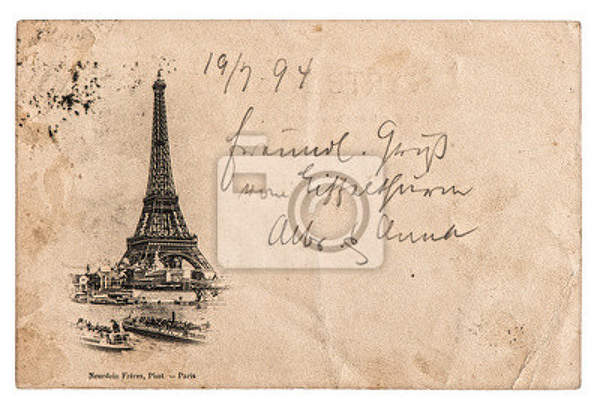 19/7.94
freundl. Gruß
vom Eiffelthurm
Anna
Neurdein Frères, Phot. — Paris